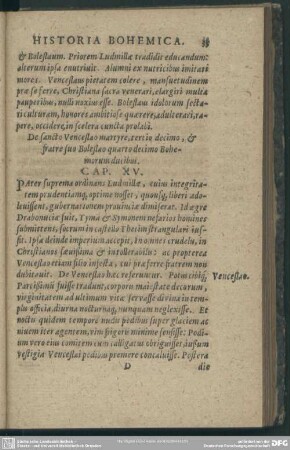 HISTORIA BOHEMICA.
& Boleslaum. Priorem Ludmillæ tradidit educandum:
alterum ipsa enutriuit. Alumni ex nutricibus imitari
mores. Venceslaus pietatem colere, mansuetudinem
præ se ferre, Christiana sacra venerari, elargiri multa
pauperibus, nulli nuxius esse. Boleslaus idolorum secta-
ri culturam, honores ambitiose quærere, adulterari, ra-
pere, occidere, in scelera cuncta prolabi.
De sancto Venceslao martyre, tertio decimo, &
fratre suo Boleslao quarto decimo Bohe-
morum ducibus.
CAP. XV.
PAter suprema ordinans Ludmillæ, cuius integrita-
tem prudentiamq; optime nosset, quousq; liberi ado-
leuissent, gubernationem prouinciæ dimiserat. Id ægre
Drahomicia tulit, Tyma & Symonem nefarios homines
submittens, socrum in castello Thetim strangulari ius-
sit. Ipsa deinde imperium accepit, in omnes crudelis, in
Christianos sæuissima & intollerabilis: ac propterea
Venceslao etiam filio infesta, cui præferre fratrem non
dubitauit. De Venceslao hæc referuntur.
Parcissimi fuisse tradunt, corporis maiestate decorum,
virginitatem ad ultimum vitæ seruasse diuina in tem-
plis officia, diurna nocturnaq; nunquam neglexisse. Et
noctis quidem tempore nudis pedibus super glaciem ac
niuem iter agentem, vim frigoris minime sensisse: Pedi-
um vero eius comitem cum calligatus obriguisset, iussum
vestigia Venceslai pedibus premere concaluisse. Postera
Venceslaus.
D
die